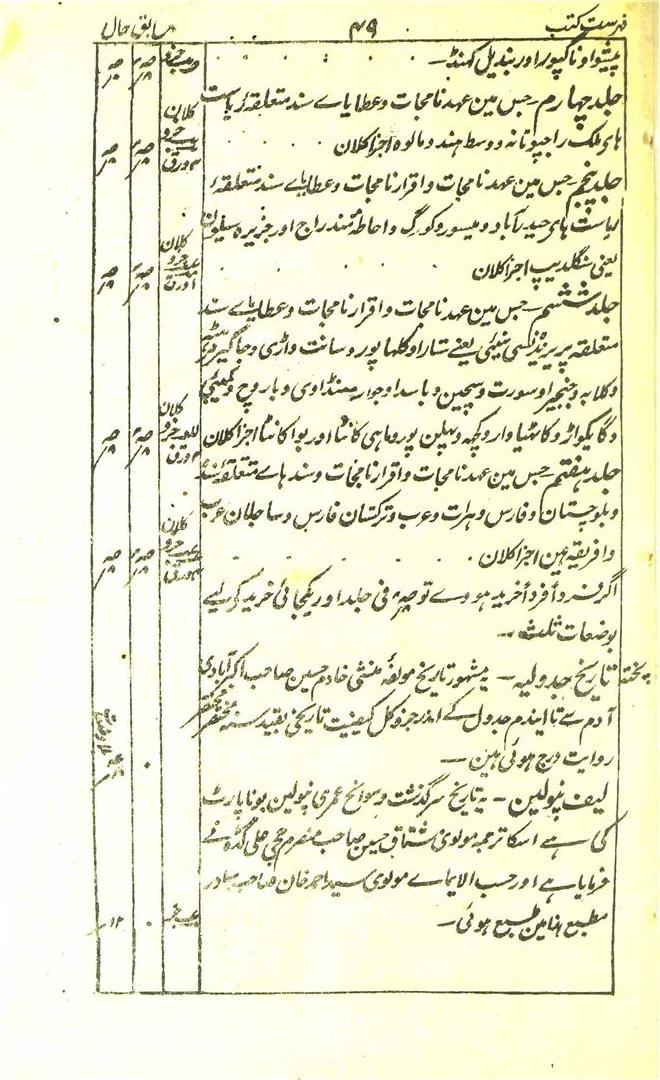 فہرست کتب ۴۹ سابق حال
پیشوا و ناگپور اور بندیل کھنڈ۔
جلد چہارم۔ جس مین عہدنامجات و عطایاے سند متعلقہٴ ریاست
ہای ملک راجپوتانہ و وسط ہند و مالوہ اجزا کلان
جلد پنجم۔ جس مین عہدنامجات و اقرارنامجات و عطایاے سند متعلقہٴ
ریاست ہای حیدرآباد و میسور و کورگ و احاطہٴ مندراج اور جزیرہ سیلون
یعنی سنگلدیپ اجزا کلان
جلد ششم۔ جس مین عہدنامجات و اقرارنامجات و عطایاے سند
متعلقہ پریزیڈنسی بنبئی یعنے ستارا و کلہاپور و سانت واڑی و جاگیر
و کلابہ و جنجیرا و سورت و سچین و باسدا و جوار منڈاوی و باروچ و
و گایکواڑ و کاٹھیاوار و کچھ و پہلن پور و ماہی کانٹا اور یوا کانٹا اجزا کلان
جلد ہفتم۔ جس مین عہدنامجات و اقرارنامجات و سندہاے متعلقہٴ سندھ
و بلوچستان و فارس و ہرات و عرب و ترکستان فارس و ساحلان عرب
و افریقہ مین اجزا کلان
اگر فرداً فرداً خرید ہووے تو فی جلد اور یکجائی خرید کے لیے
بوضعات ثلث۔
تاریخ جدولیہ۔ یہ مشہور تاریخ مولفہٴ منشی خادم حسین صاحب اکبرآبادی
آدم سے تا ایندم جدول کے اندر جزو کل کیفیت تاریخی بقید سنہ مختصر
روایت درج ہوئی ہین۔
لیف نپولین۔ یہ تاریخ سرگذشت و سوانح عمری نپولین بوناپارٹ
کی ہے اسکا ترجمہ مولوی مشتاق حسین صاحب منصرم ججی علی گڈہ نے
فرمایا ہے اور حسب الایماے مولوی سید احمد خان صاحب بہادر
مطبع ہذا مین طبع ہوئی۔